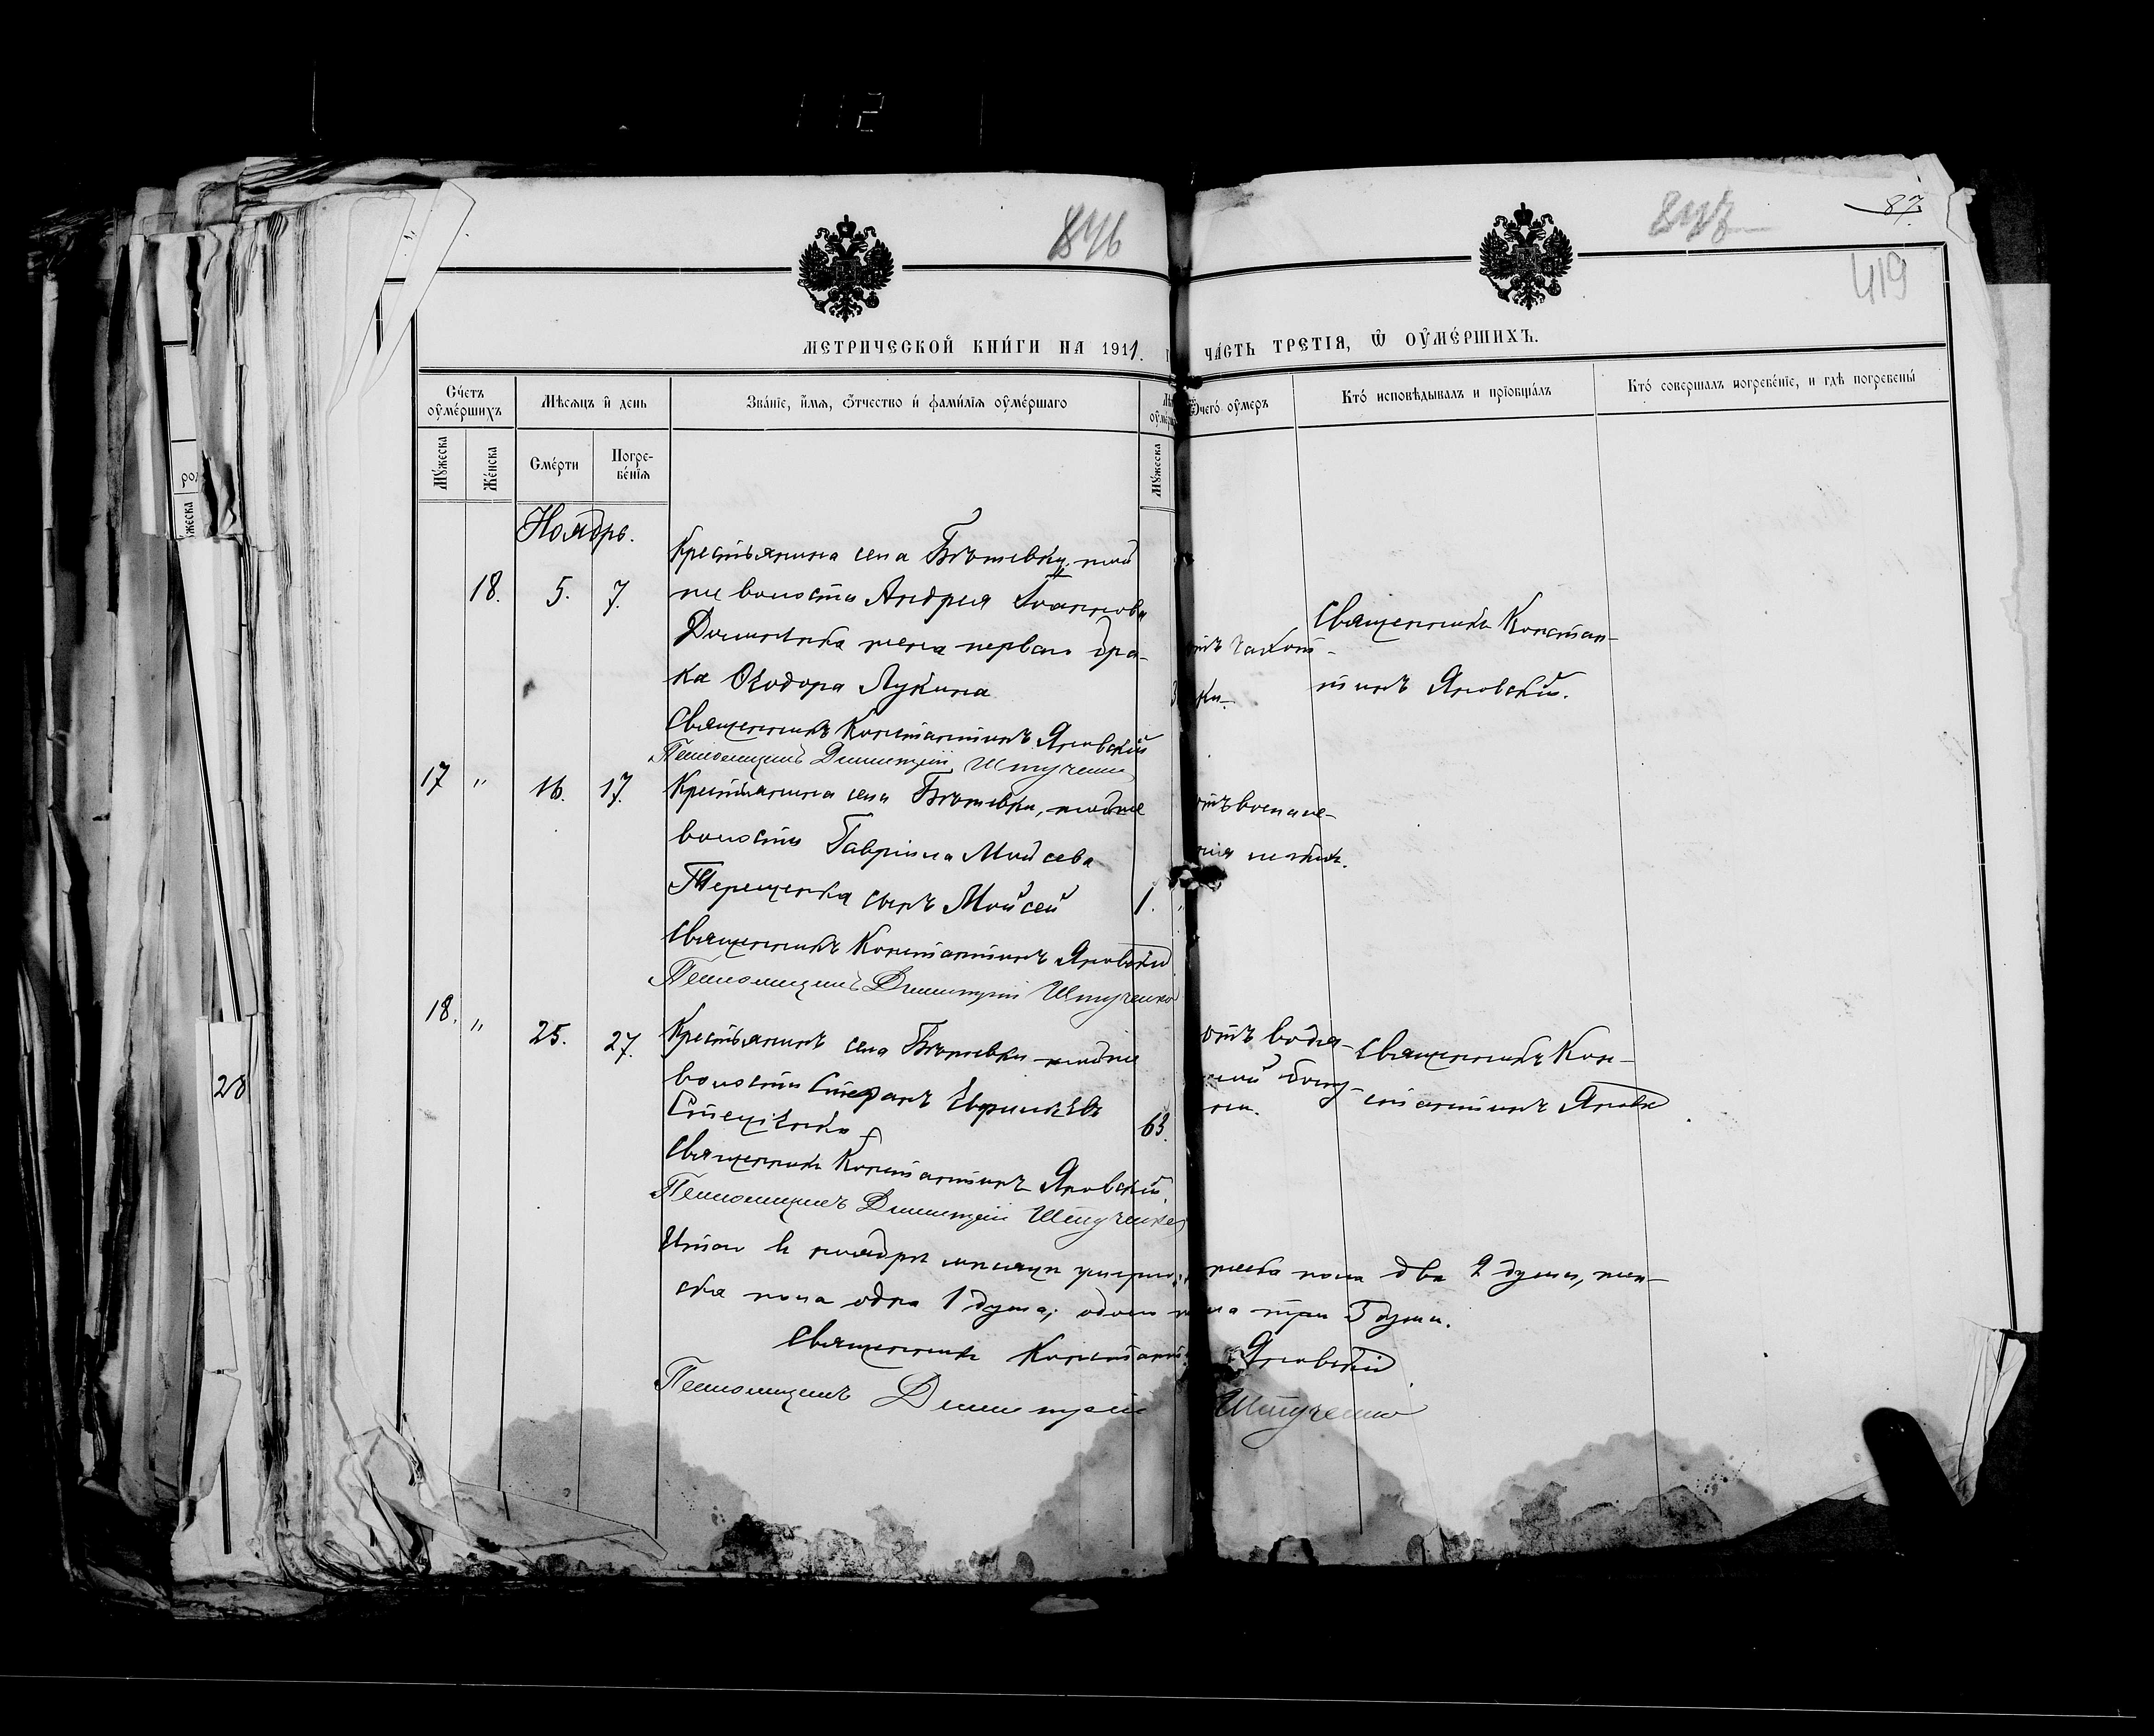 112
846
847
87.
419
МЕТРИЧЕСКОЙ КНИГИ НА 1911. ЧАСТЬ ТРЕТІЯ, Ѿ ОУМЕРШИХЪ.
Счетъ оумершихъ
Мѣсяцъ и день
Званіе, имя, отчество и фамилія оумершаго
Ѿчего оумеръ
Кто исповѣдывалъ и пріобщалъ
Кто совершалъ погребеніе, и гдѣ погребены
Мужеска
Женска
Смерти
Погребенія
Мужеска
Ноябрь.
18. 5. 7.
Крестьянина села
волости Андрея Іоаннова
жена перваго бра-
ка Ѳеодора Лукина
Священникъ Константинъ Яновскій
Псаломщикъ Димитрій Штученко
отъ чахот-
ки.
Священникъ Констан-
тинъ Яновскій.
17 " 16. 17.
Крестьянина села
волости Гавріила Мойсева
Терещенка сынъ Мойсей
1.
Священникъ Константинъ Яновскій
Псаломщикъ Димитрій Штученко
отъ воспале-
нія легких.
18. " 25. 27.
Крестьянинъ села
волости Стефанъ
63.
Священникъ Константинъ Яновскій.
Псаломщикъ Димитрій Штученко
отъ водя-
ной
Священникъ Кон-
стантинъ Яновск
Итого в ноябрѣ месяцѣ умерло: мужеска пола два 2 души, жен-
ска пола одна 1 душа; обоего пола три 3 души.
Священникъ Константинъ Яновскій
Псаломщикъ Димитрій Штученко
28